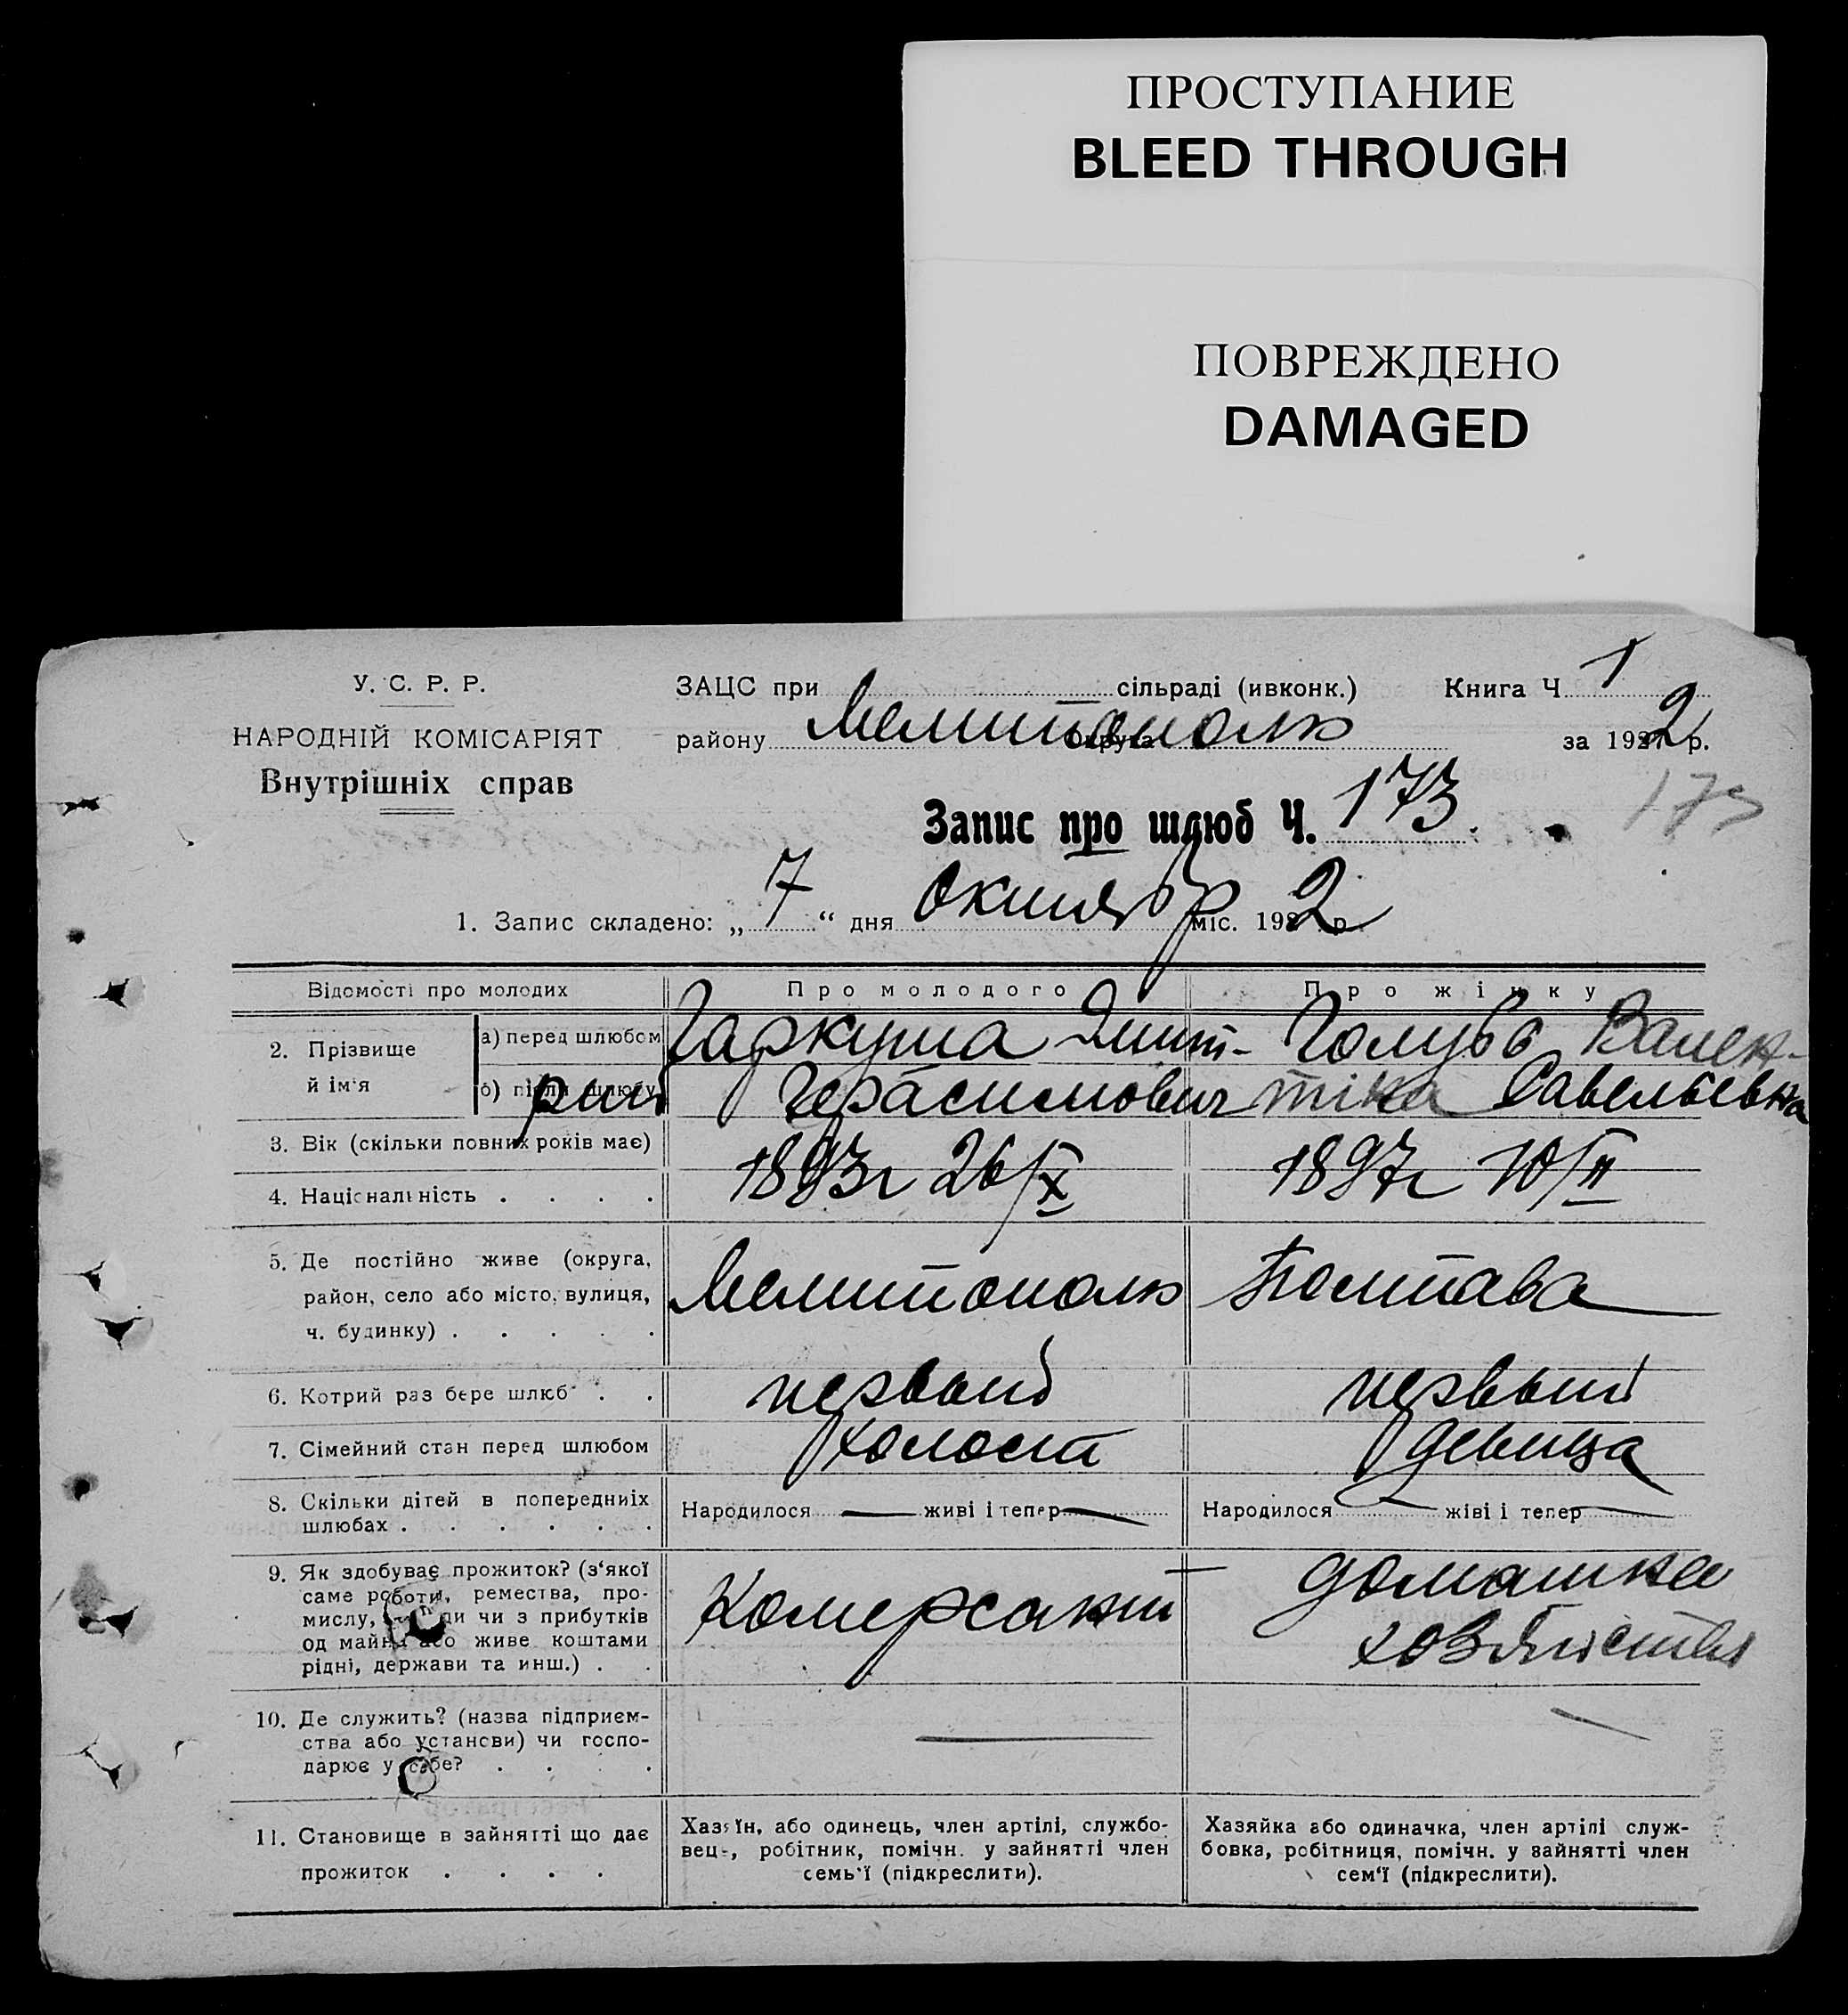 ПРОСТУПАНИЕ
BLEED THROUGH
ПОВРЕЖДЕНО
DAMAGED
У. С. Р. Р.
НАРОДНІЙ КОМІСАРІЯТ
Внутрішніх справ
ЗАЦС при сільраді (ивконк.) Книга Ч 1
району Мелитополь Округа за 1922 р.
Запис про шлюб Ч. 173. 173
1. Запис складено: „7“ дня октября міс. 1922 р.
Відомості про молодих Про молодого Про жінку
2. Прізвище й ім'я
а) перед шлюбом Гаркуша Дмит- Голубь Вален-
б) після шлюбу рий Герасимович тина Савельевна
3. Вік (скільки повних років має)
4. Національність . . . .
1893г 26/X 1897г 10/II
5. Де постійно живе (округа,
район, село або місто, вулиця,
ч. будинку) . . . . .
Мелитополь Полтава
6. Котрий раз бере шлюб . . первый первый
7. Сімейний стан перед шлюбом холост девица
8. Скільки дітей в попередниіх
шлюбах . . . . . .
Народилося — живі і тепер — Народилося — жіві і тепер —
9. Як здобуває прожиток? (з'якої
саме роботи, ремества, про-
мислу, ди чи з прибутків
од майна або живе коштами
рідні, держави та инш.) . .
Комерсант домашнее
10. Де служить? (назва підприєм-
ства або установи) чи госпо-
дарює у себе? . . . .
— —
11. Становище в зайнятті що дає
прожиток . . . .
Хазяїн, або одинець, член артілі, службо-
вець, робітник, помічн. у зайнятті член
семь'ї (підкреслити).
Хазяйка або одиначка, член артілі служ-
бовка, робітниця, помічн. у зайнятті член
сем'ї (підкреслити).